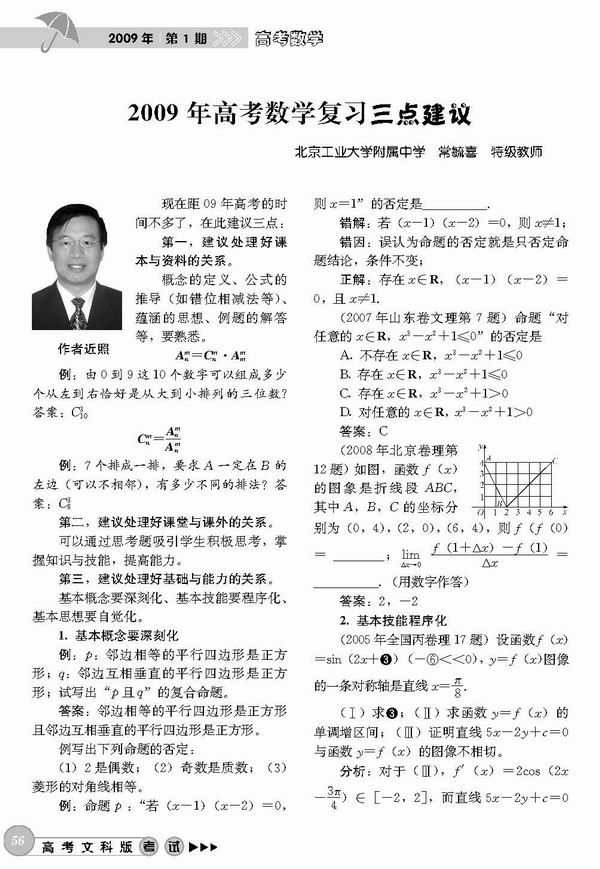 2009年 第1期 高考数学
2009年高考数学复习三点建议
北京工业大学附属中学 常毓喜 特级教师
现在距09年高考的时
间不多了，在此建议三点：
第一，建议处理好课
本与资料的关系。
概念的定义、公式的
推导（如错位相减法等）、
蕴涵的思想、例题的解答
等，要熟悉。
作者近照
Aₙᵐ=Cₙᵐ·Aₘᵐ
例：由0到9这10个数字可以组成多少
个从左到右恰好是从大到小排列的三位数？
答案：C₁₀³
Cₙᵐ=Aₙᵐ/Aₘᵐ
例：7个排成一排，要求A一定在B的
左边（可以不相邻），有多少不同的排法？答
案：
第二，建议处理好课堂与课外的关系。
可以通过思考题吸引学生积极思考，掌
握知识与技能，提高能力。
第三，建议处理好基础与能力的关系。
基本概念要深刻化、基本技能要程序化、
基本思想要自觉化。
1. 基本概念要深刻化
例：p：邻边相等的平行四边形是正方
形；q：邻边互相垂直的平行四边形是正方
形；试写出“p且q”的复合命题。
答案：邻边相等的平行四边形是正方形
且邻边互相垂直的平行四边形是正方形。
例写出下列命题的否定：
（1）2是偶数；（2）奇数是质数；（3）
菱形的对角线相等。
例：命题p：“若（x－1）（x－2）＝0，
则x＝1”的否定是________.
错解：若（x－1）（x－2）＝0，则x≠1；
错因：误认为命题的否定就是只否定命
题结论，条件不变；
正解：存在x∈R，（x－1）（x－2）＝
0，且x≠1.
（2007年山东卷文理第7题）命题“对
任意的x∈R，x³－x²＋1≤0”的否定是
A. 不存在x∈R，x³－x²＋1≤0
B. 存在x∈R，x³－x²＋1≤0
C. 存在x∈R，x³－x²＋1＞0
D. 对任意的x∈R，x³－x²＋1＞0
答案：C
（2008年北京卷理第
12题）如图，函数f（x）
的图象是折线段ABC，
其中A，B，C的坐标分
别为（0，4），（2，0），（6，4），则f（f（0）
＝________；lim Δx→0 f（1＋Δx）－f（1）/Δx＝
________.（用数字作答）
答案：2，－2
y
A
C
4
3
2
1
O
B
1 2 3 4 5 6 x
2. 基本技能程序化
（2005年全国丙卷理17题）设函数f（x）
＝sin（2x＋❸）（－⑥<<0），y＝f（x）图像
的一条对称轴是直线x＝π/8.
（Ⅰ）求❸；（Ⅱ）求函数y＝f（x）的
单调增区间；（Ⅲ）证明直线5x－2y＋c＝0
与函数y＝f（x）的图像不相切。
分析：对于（Ⅲ），f′（x）＝2cos（2x
－3π/4）∈［－2，2］，而直线5x－2y＋c＝0
56
高考文科版 考试